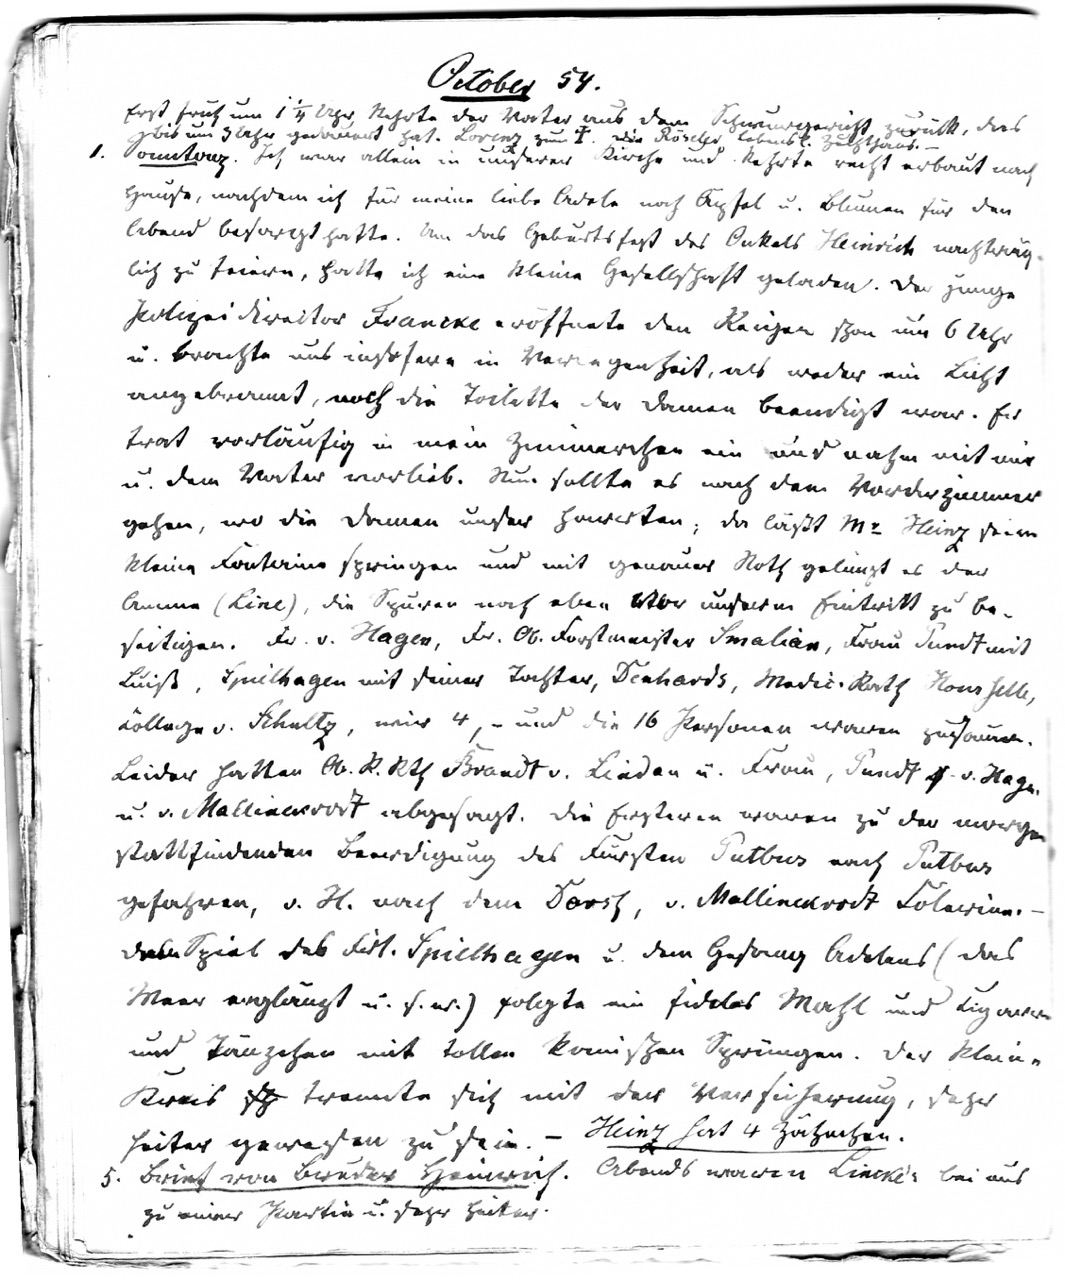 October 54.
Erst früh um 1 1/4 Uhr kehrte der Vater aus dem Schwurgericht zurück, das
bis um 1 Uhr gedauert hat. Lorenz zum T. die Röseler lebensl. Zuchthaus. –
1. Sonntag. Ich war allein in unserer Kirche und kehrte recht erbaut nach
Hause, nachdem ich für meine liebe Adele noch Äpfel u. Blumen für den
Abend besorgt hatte. Um das Geburtsfest des Onkels Heinrich nachträg-
lich zu feiern, hatte ich eine kleine Gesellschaft geladen. Der junge
Polizeidirector Francke eröffnete den Reigen schon um 6 Uhr
u. brachte uns insofern in Verlegenheit, als weder ein Licht
angebrannt, noch die Toilette der Damen beendigt war. Er
trat vorläufig in mein Zimmerchen ein und nahm mit mir
u. dem Vater vorlieb. Nun sollte es nach dem Vorderzimmer
gehen, wo die Damen unser harrten; da läßt Mr Heinz seine
kleine Fontaine springen und mit genauer Noth gelingt es der
Amme (Line), die Spuren noch eben vor unserem Eintritt zu be-
seitigen. Fr. v. Hagen, Fr. Ob. Forstmeister Smalian, Frau Pundt mit
Luise, Spielhagen mit seiner Tochter, Denhards, Medic. Rath Honselle,
College v. Schultz, wir 4, – und die 16 Personen waren zusammen.
Leider hatten Ob. R. Rth Brandt v. Linden u. Frau, Pundt v. Hagen
u. v. Mallinckrodt abgesagt. Die Ersteren waren zu der morgen
stattfindenden Beerdigung des Fürsten Putbus nach Putbus
gefahren, v. H. nach dem Darß, v. Mallinckrodt Cholerine. –
dem Spiel des Frl. Spielhagen u. dem Gesang Adelens (das
Meer erglänzt u. s. w.) folgte ein fideles Mahl und Cigarren
und Tänzchen mit tollen komischen Sprüngen. Der kleine
Kreis trennte sich mit der Versicherung, sehr
heiter gewesen zu sein. – Heinz hat 4 Zähnchen.
5. Brief von Bruder Heinrich. Abends waren Lincke's bei uns
zu einer Partie u. sehr heiter.